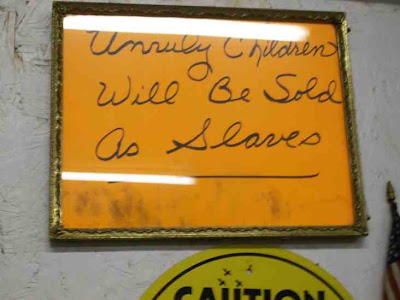 Unruly Children
Will Be Sold
As Slaves
CAUTION